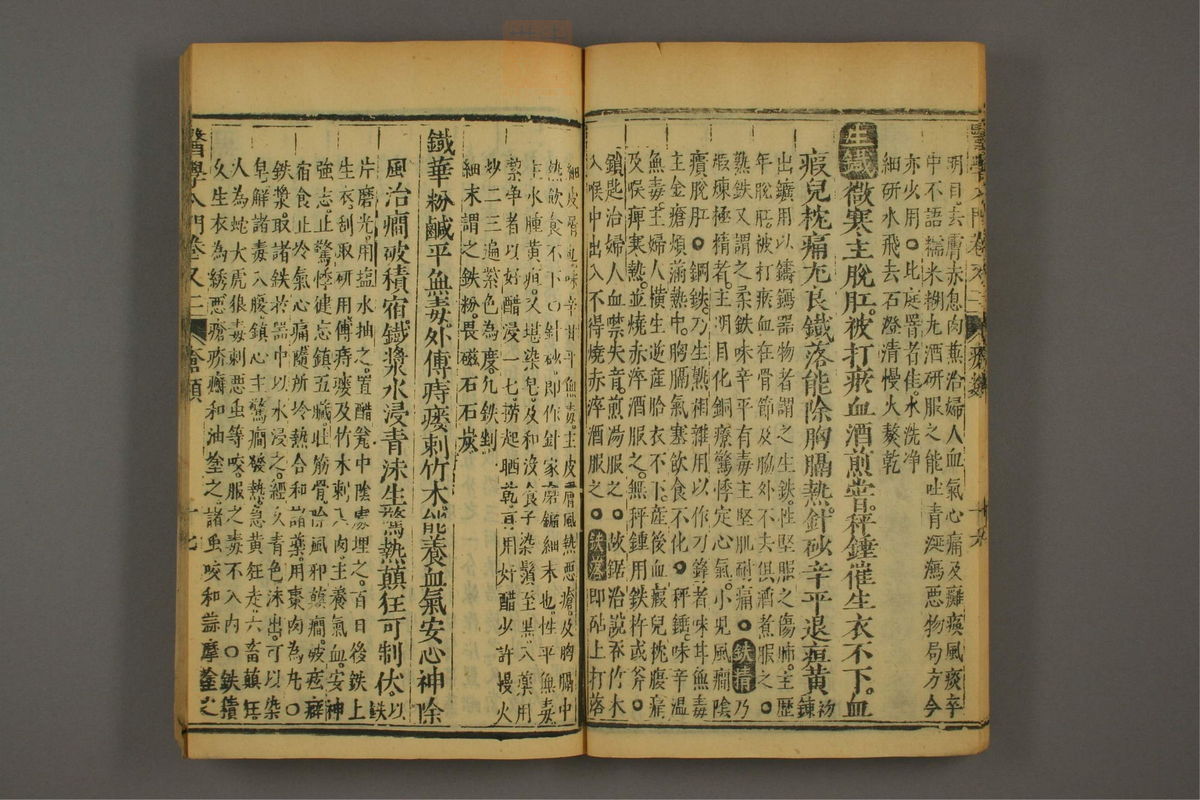 明目去膚赤息肉兼治婦人血氣心痛及癱瘓風痰卒
中不語糯米糊丸酒研服之能吐青涎瀉惡物局方今
亦少用○此庭磬者佳水洗净
細研水飛去石澄清慢火熬乾
生鐵微寒主脫肛被打瘀血酒煎嘗秤錘催生衣不下血
瘕兒枕痛尤良鐵落能除胸膈熱針砂辛平退疸黃初鍊
出鑛用以鑄鎢器物者謂之生鉄性堅服之傷肺主歷
年脫肛被打瘀血在骨節及脇外不去俱酒煮服之○
熟鉄又謂之柔鉄味辛平有毒主堅肌耐痛○鉄精乃
煅煉極精者主明目化銅療驚悸定心氣小兒風癇陰
㿉脫肛○鋼鉄乃生熟相雜用以作刀鋒者味甘無毒
主金瘡煩滿熱中胸膈氣塞飲食不化○秤錘味辛溫
無毒主婦人橫生逆產胎衣不下產後血瘕兒枕㾓痛
及喉痺寒熱並燒赤淬酒服之無秤錘用鉄杵或斧○
鎖匙治婦人血噤失音煎湯服之○故鋸治誤吞竹木
入喉中出入不得燒赤淬酒服之○鉄落即砧上打落
細皮屑也味辛甘平無毒主皮膚風熱惡瘡及胸膈中
熱飲食不下○針砂即作針家磨鑢細末也性平無毒
主水腫黃疸又堪染皂及和沒食子染鬚至黑入藥用
絜争者以好醋浸一七撈起晒乾再用好醋少許慢火
炒二三遍紫色為度凡鉄剉
細末謂之鉄粉畏磁石石炭
鐵華粉鹹平無毒外傅痔瘻刺竹木能養血氣安心神除
風治癇破積宿鐵漿水浸青沫生驚熱顛狂可制伏以鉄
片磨光用塩水抽之置醋瓮中陰處埋之百日後鉄上
生衣刮取研用傅痔瘻及竹木刺入肉主養氣血安神
強志止驚悸健忘鎮五臟壯筋骨除風邪顛癇破痃癖
宿食止冷氣心痛隨所冷熱合和諸藥用棗肉為丸○
鉄漿取諸鉄於器中以水浸之經久青色沫出可以染
皂解諸毒入腹鎮心主驚癇發熱急黃狂走六畜顛狂
人為蛇犬虎狼毒刺惡虫等咬服之毒不入內○鉄積
久生衣為銹惡瘡疥癬和油塗之諸虫咬和蒜摩塗之
醫學入門卷又二
瘡類
十七